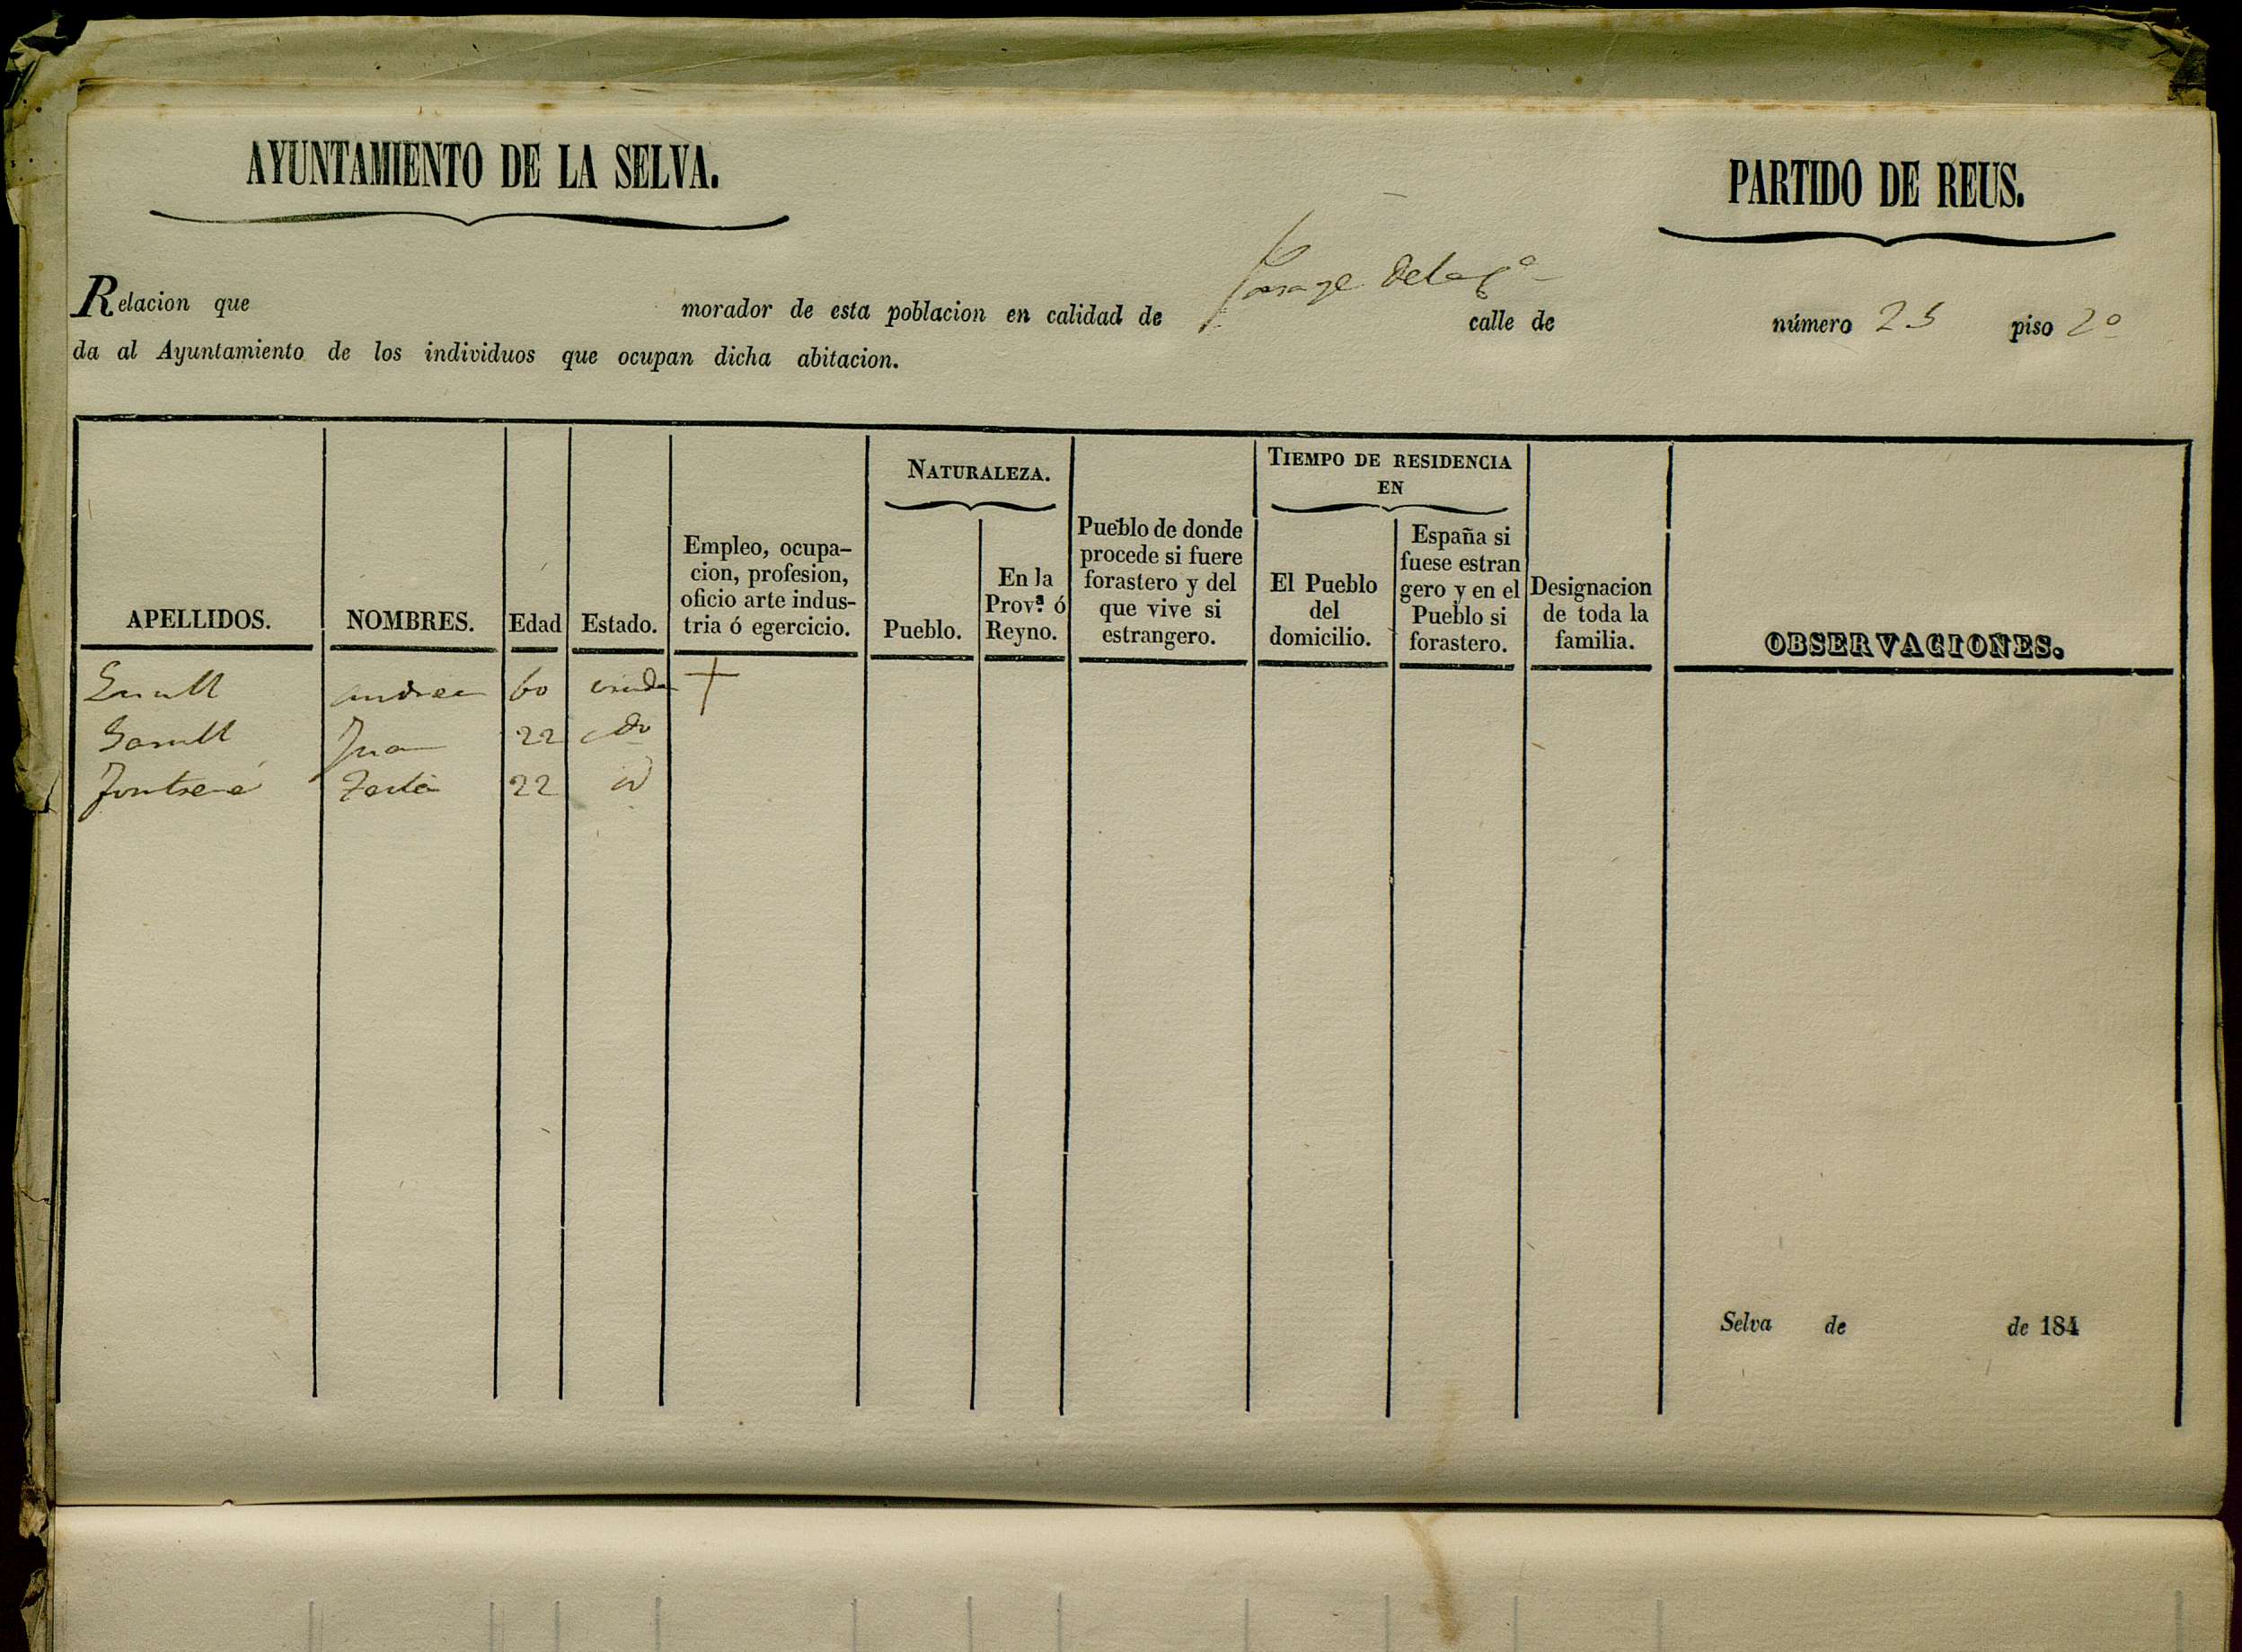 AYUNTAMIENTO DE LA SELVA.
PARTIDO DE REUS.
Relacion que morador de esta poblacion en calidad de calle de número 25 piso 2º
da al Ayuntamiento de los individuos que ocupan dicha abitacion.
APELLIDOS.
NOMBRES.
Edad
Estado.
Empleo, ocupa-
cion, profesion,
oficio arte indus-
tria ó egercicio.
NATURALEZA.
Pueblo.
En la
Provª. ó
Reyno.
Pueblo de donde
procede si fuere
forastero y del
que vive si
estrangero.
TIEMPO DE RESIDENCIA
EN
El Pueblo
del
domicilio.
España si
fuese estran
gero y en el
Pueblo si
forastero.
Designacion
de toda la
familia.
OBSERVACIONES.
Andrea 60 viuda
Juan 22
22
Selva de de 184